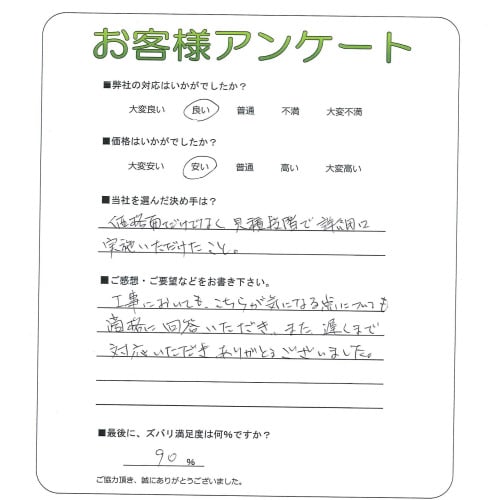 お客様アンケート
■弊社の対応はいかがでしたか？
大変良い 良い 普通 不満 大変不満
■価格はいかがでしたか？
大変安い 安い 普通 高い 大変高い
■当社を選んだ決め手は？
価格面だけでなく 見積段階で
実施いただけたこと。
■ご感想・ご要望などをお書き下さい。
工事においても、こちらが気になる点についても
に回答いただき、また 遅くまで
対応いただきありがとうございました。
■最後に、ズバリ満足度は何％ですか？
90 ％
ご協力頂き、誠にありがとうございました。